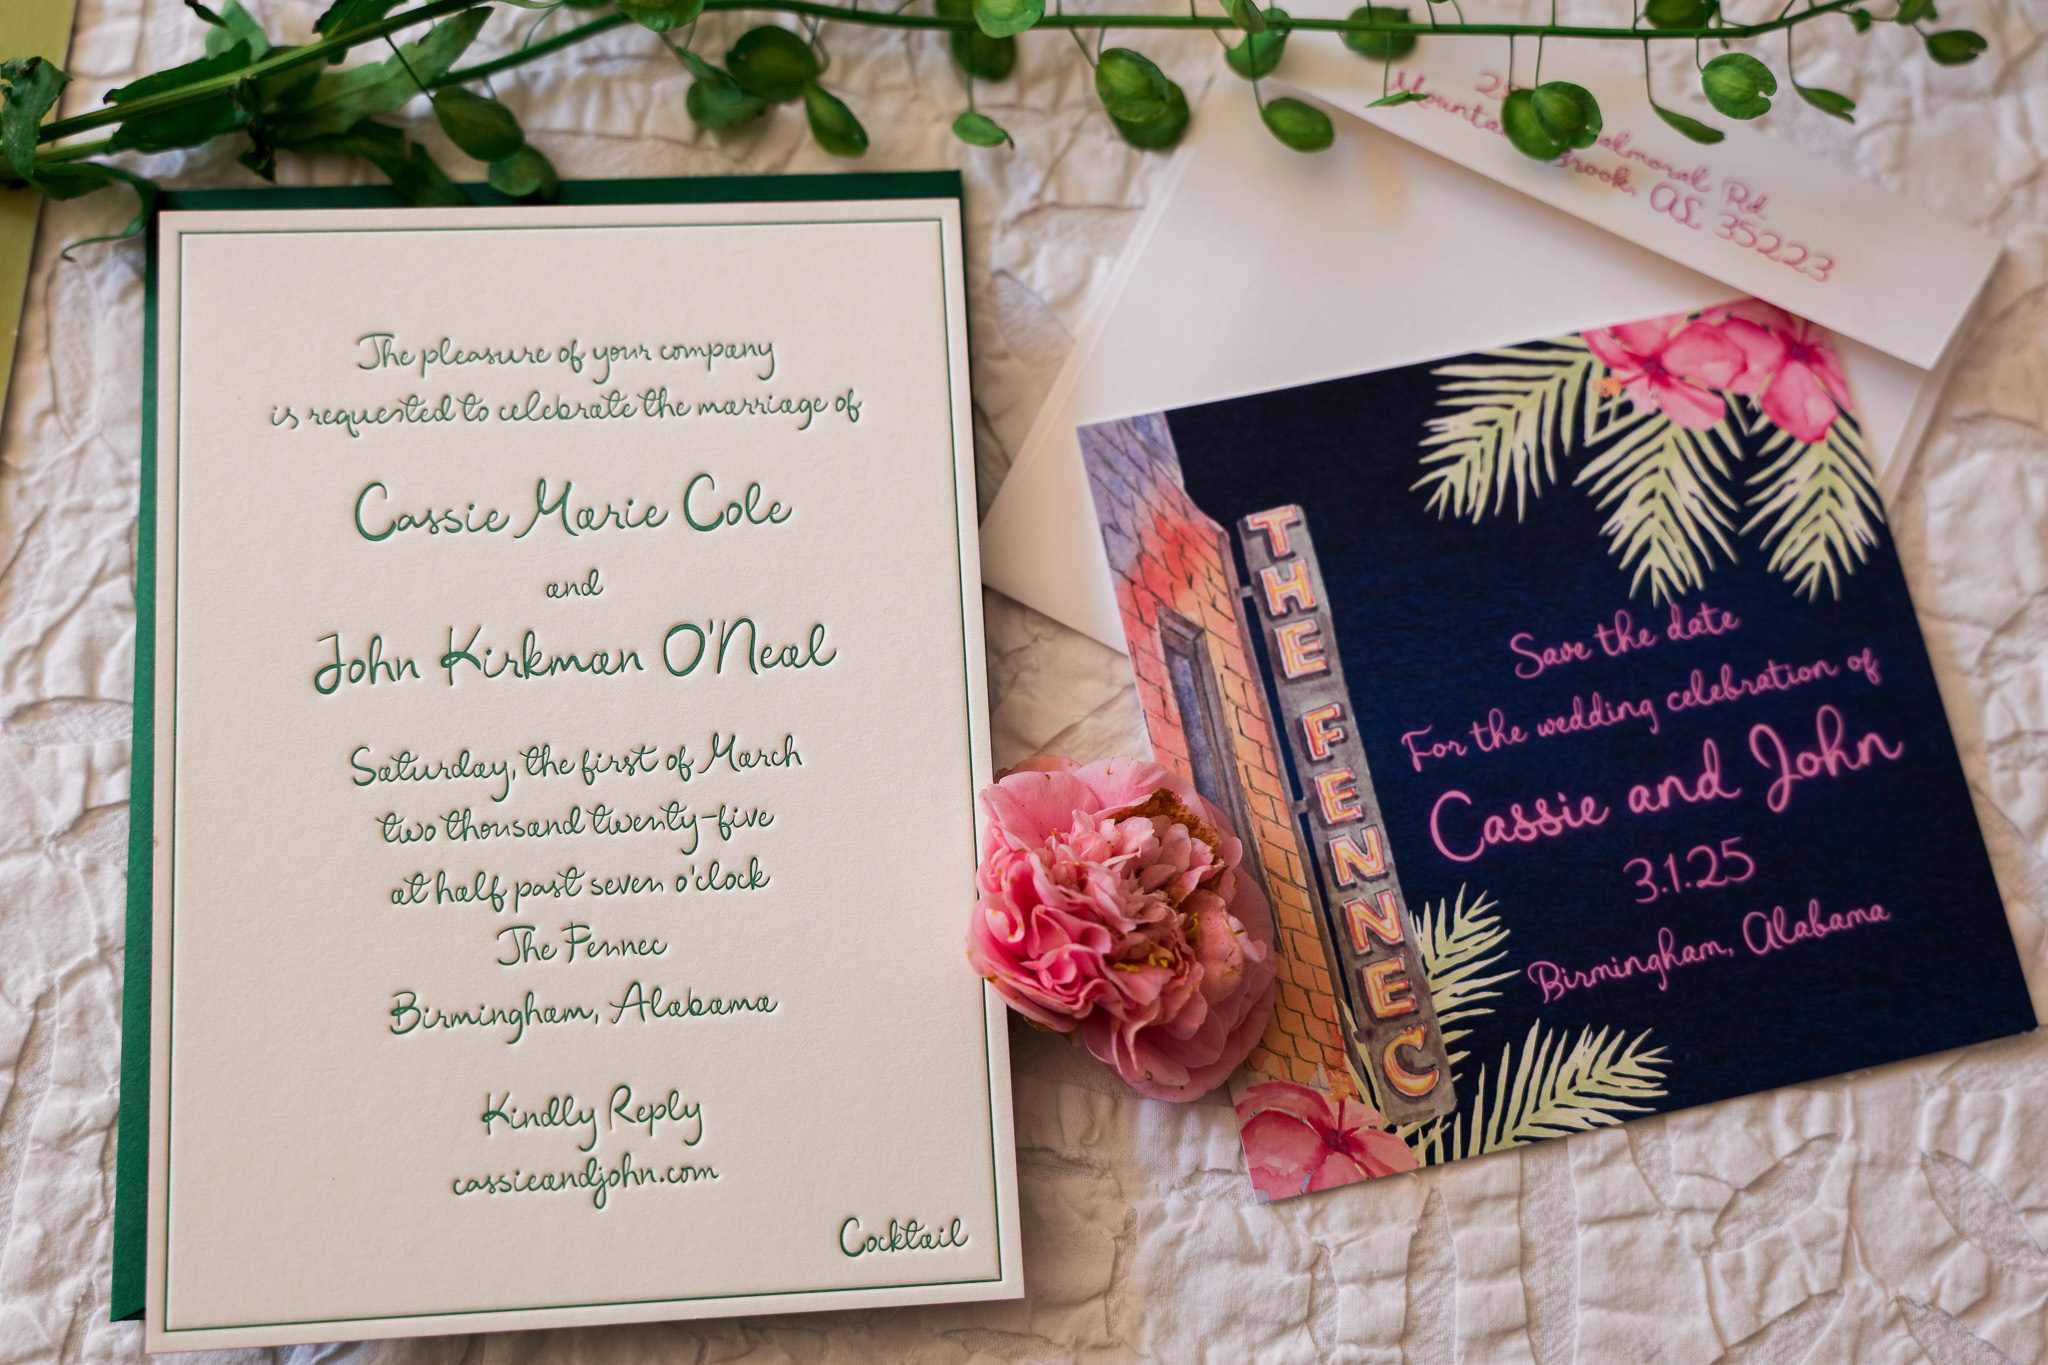 The pleasure of your company
is requested to celebrate the marriage of
Cassie Marie Cole
and
John Kirkman O'Neal
Saturday, the first of March
two thousand twenty-five
at half past seven o'clock
The Fennec
Birmingham, Alabama
Kindly Reply
cassieandjohn.com
Cocktail
Rd
Brook, AL 35223
THE FENNEC
Save the date
For the wedding celebration of
Cassie and John
3.1.25
Birmingham, Alabama